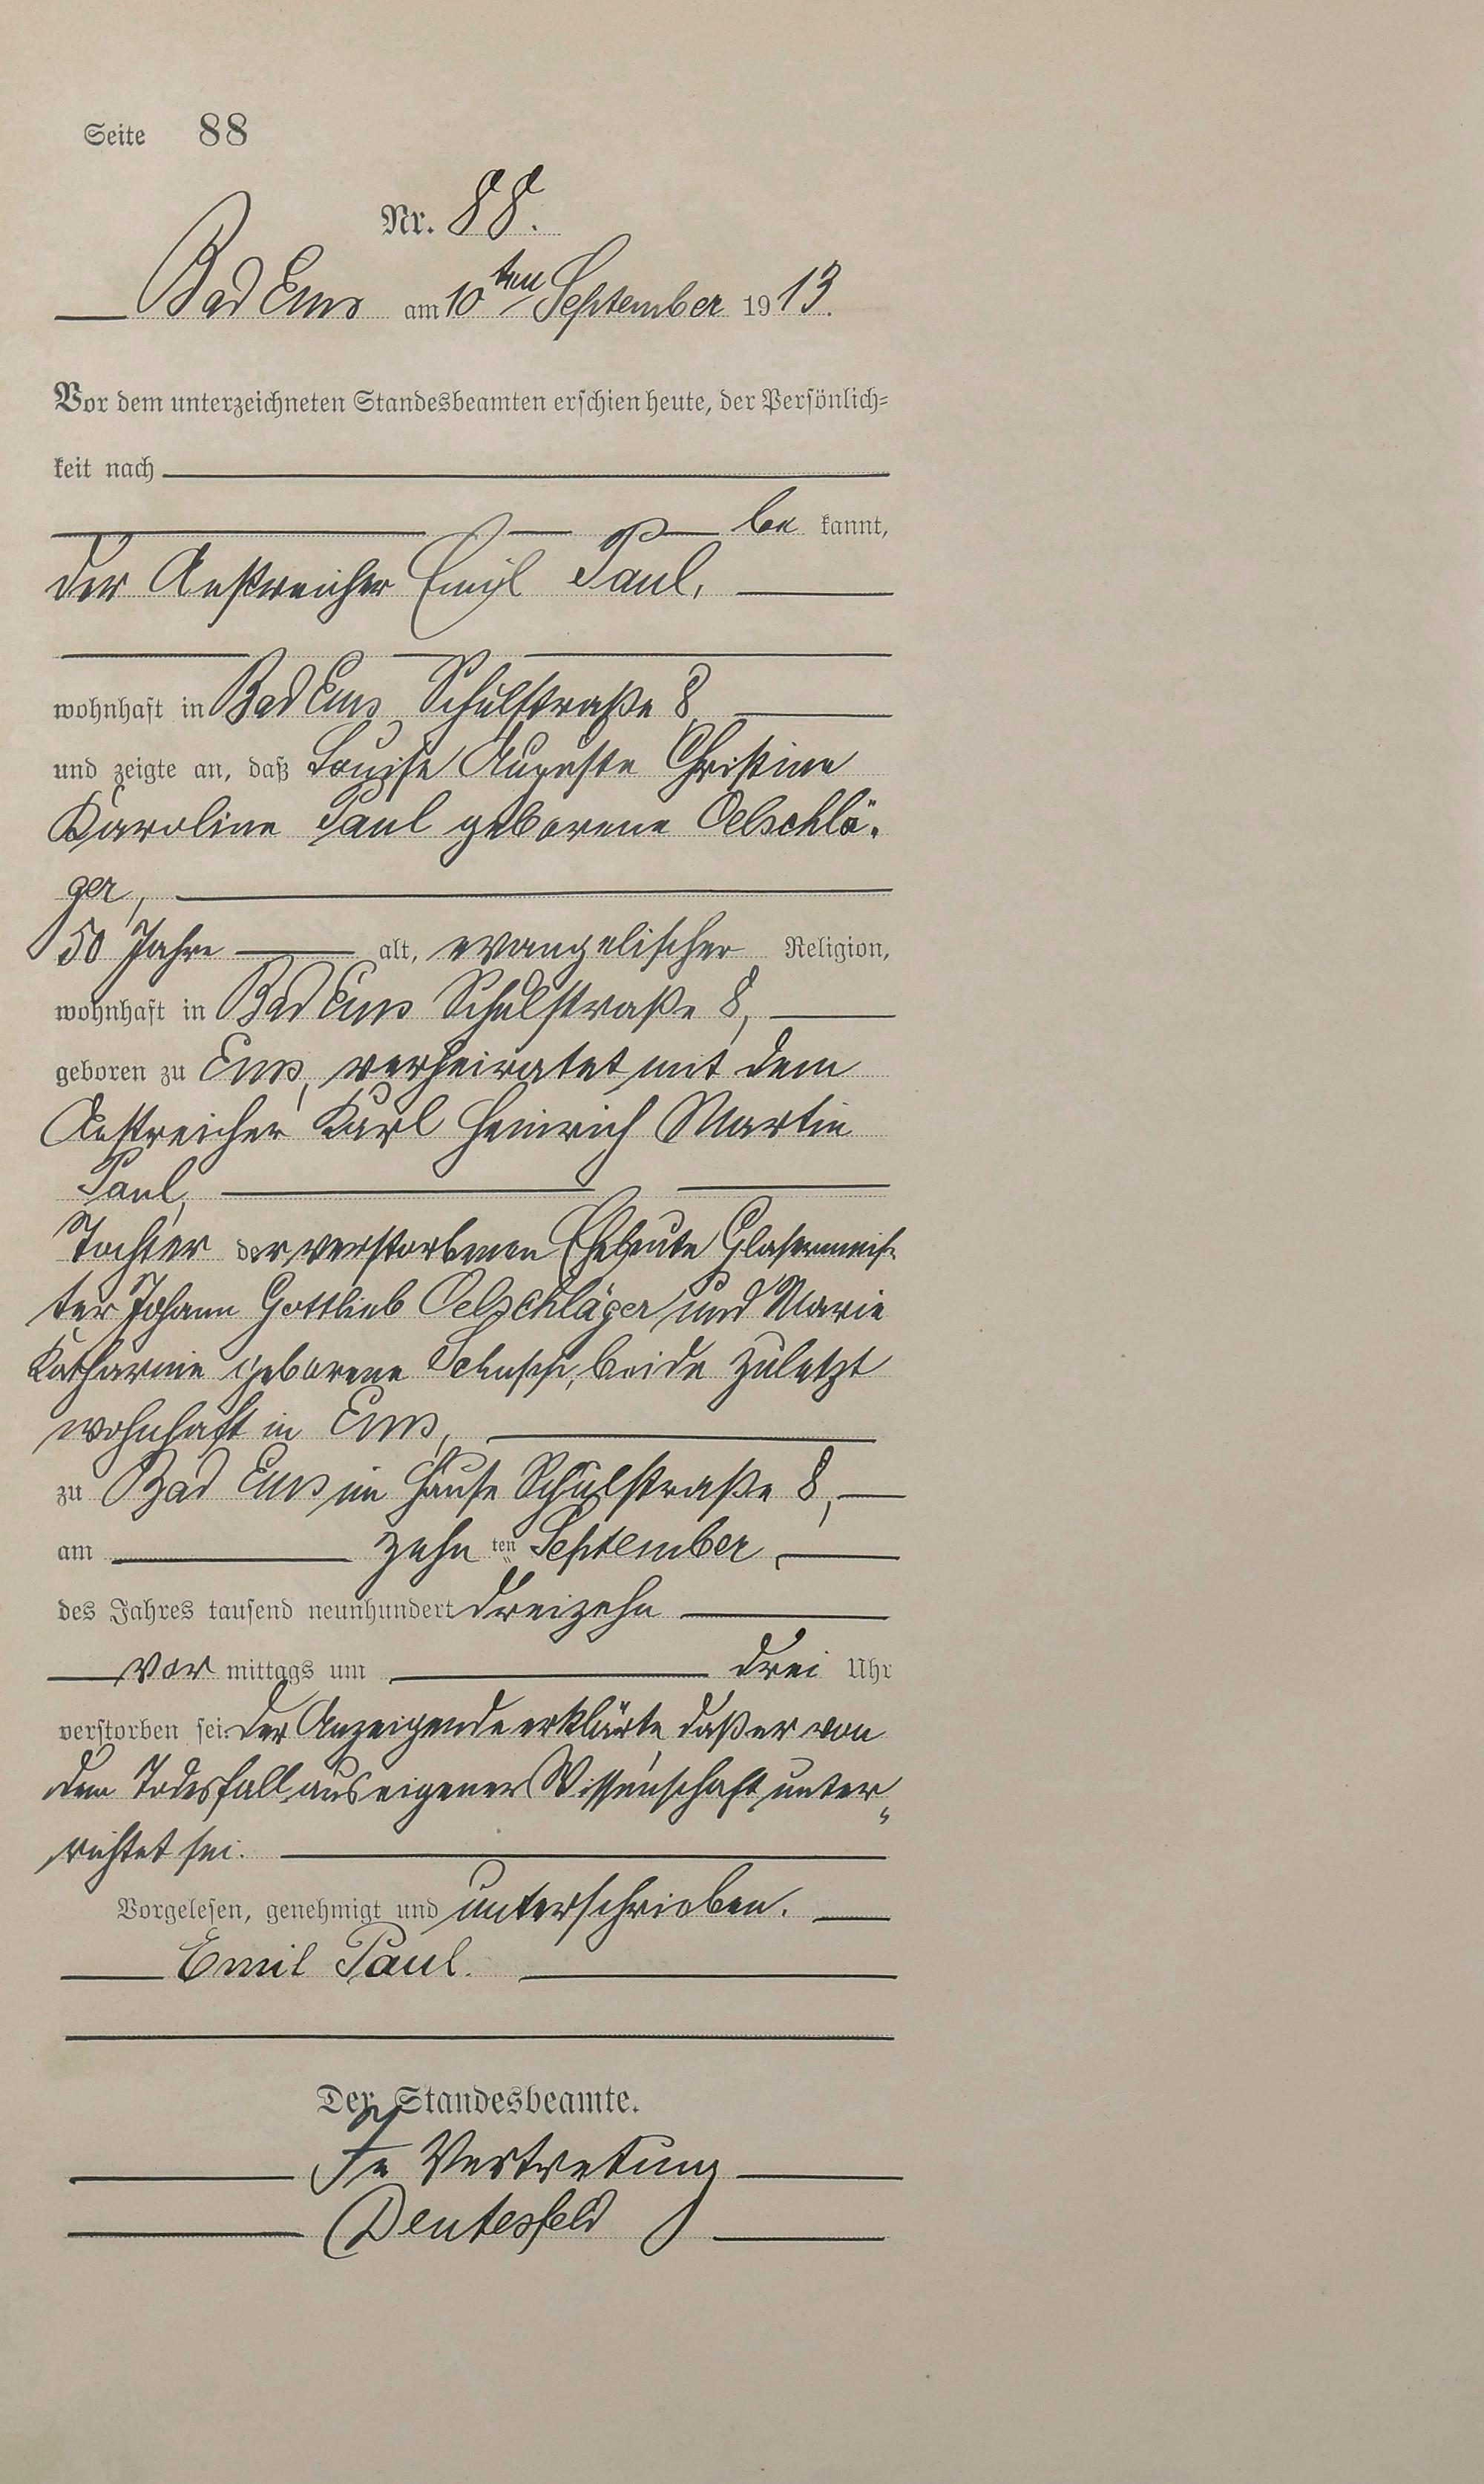 Seite 88
Nr. 88.
Bad Ems am 10ten September 1913.
Vor dem unterzeichneten Standesbeamten erschien heute, der Persönlich=
keit nach
be kannt,
der Anstreicher Emil Paul,
wohnhaft in Bad Ems Schulstraße 8
und zeigte an, daß Louise Auguste Christine
Karoline Paul geborene Oelschlä-
ger,
50 Jahre alt, evangelischer Religion,
wohnhaft in Bad Ems Schulstraße 8,
geboren zu Ems, verheiratet mit dem
Anstreicher Karl Heinrich Martin
Paul,
Tochter der verstorbenen Eheleute Glasermeis-
ter Johann Gottlieb Oelschläger und Marie
Katharine geborene beide zuletzt
wohnhaft in Ems,
zu Bad Ems im Hause Schulstraße 8,
am zehn ten September
des Jahres tausend neunhundert dreizehn
vor mittags um drei Uhr
verstorben sei. Der Anzeigende erklärte daß er von
dem Todesfall aus eigener Wissenschaft unter„
richtet sei.
Vorgelesen, genehmigt und unterschrieben.
Emil Paul.
Der Standesbeamte.
In Vertretung